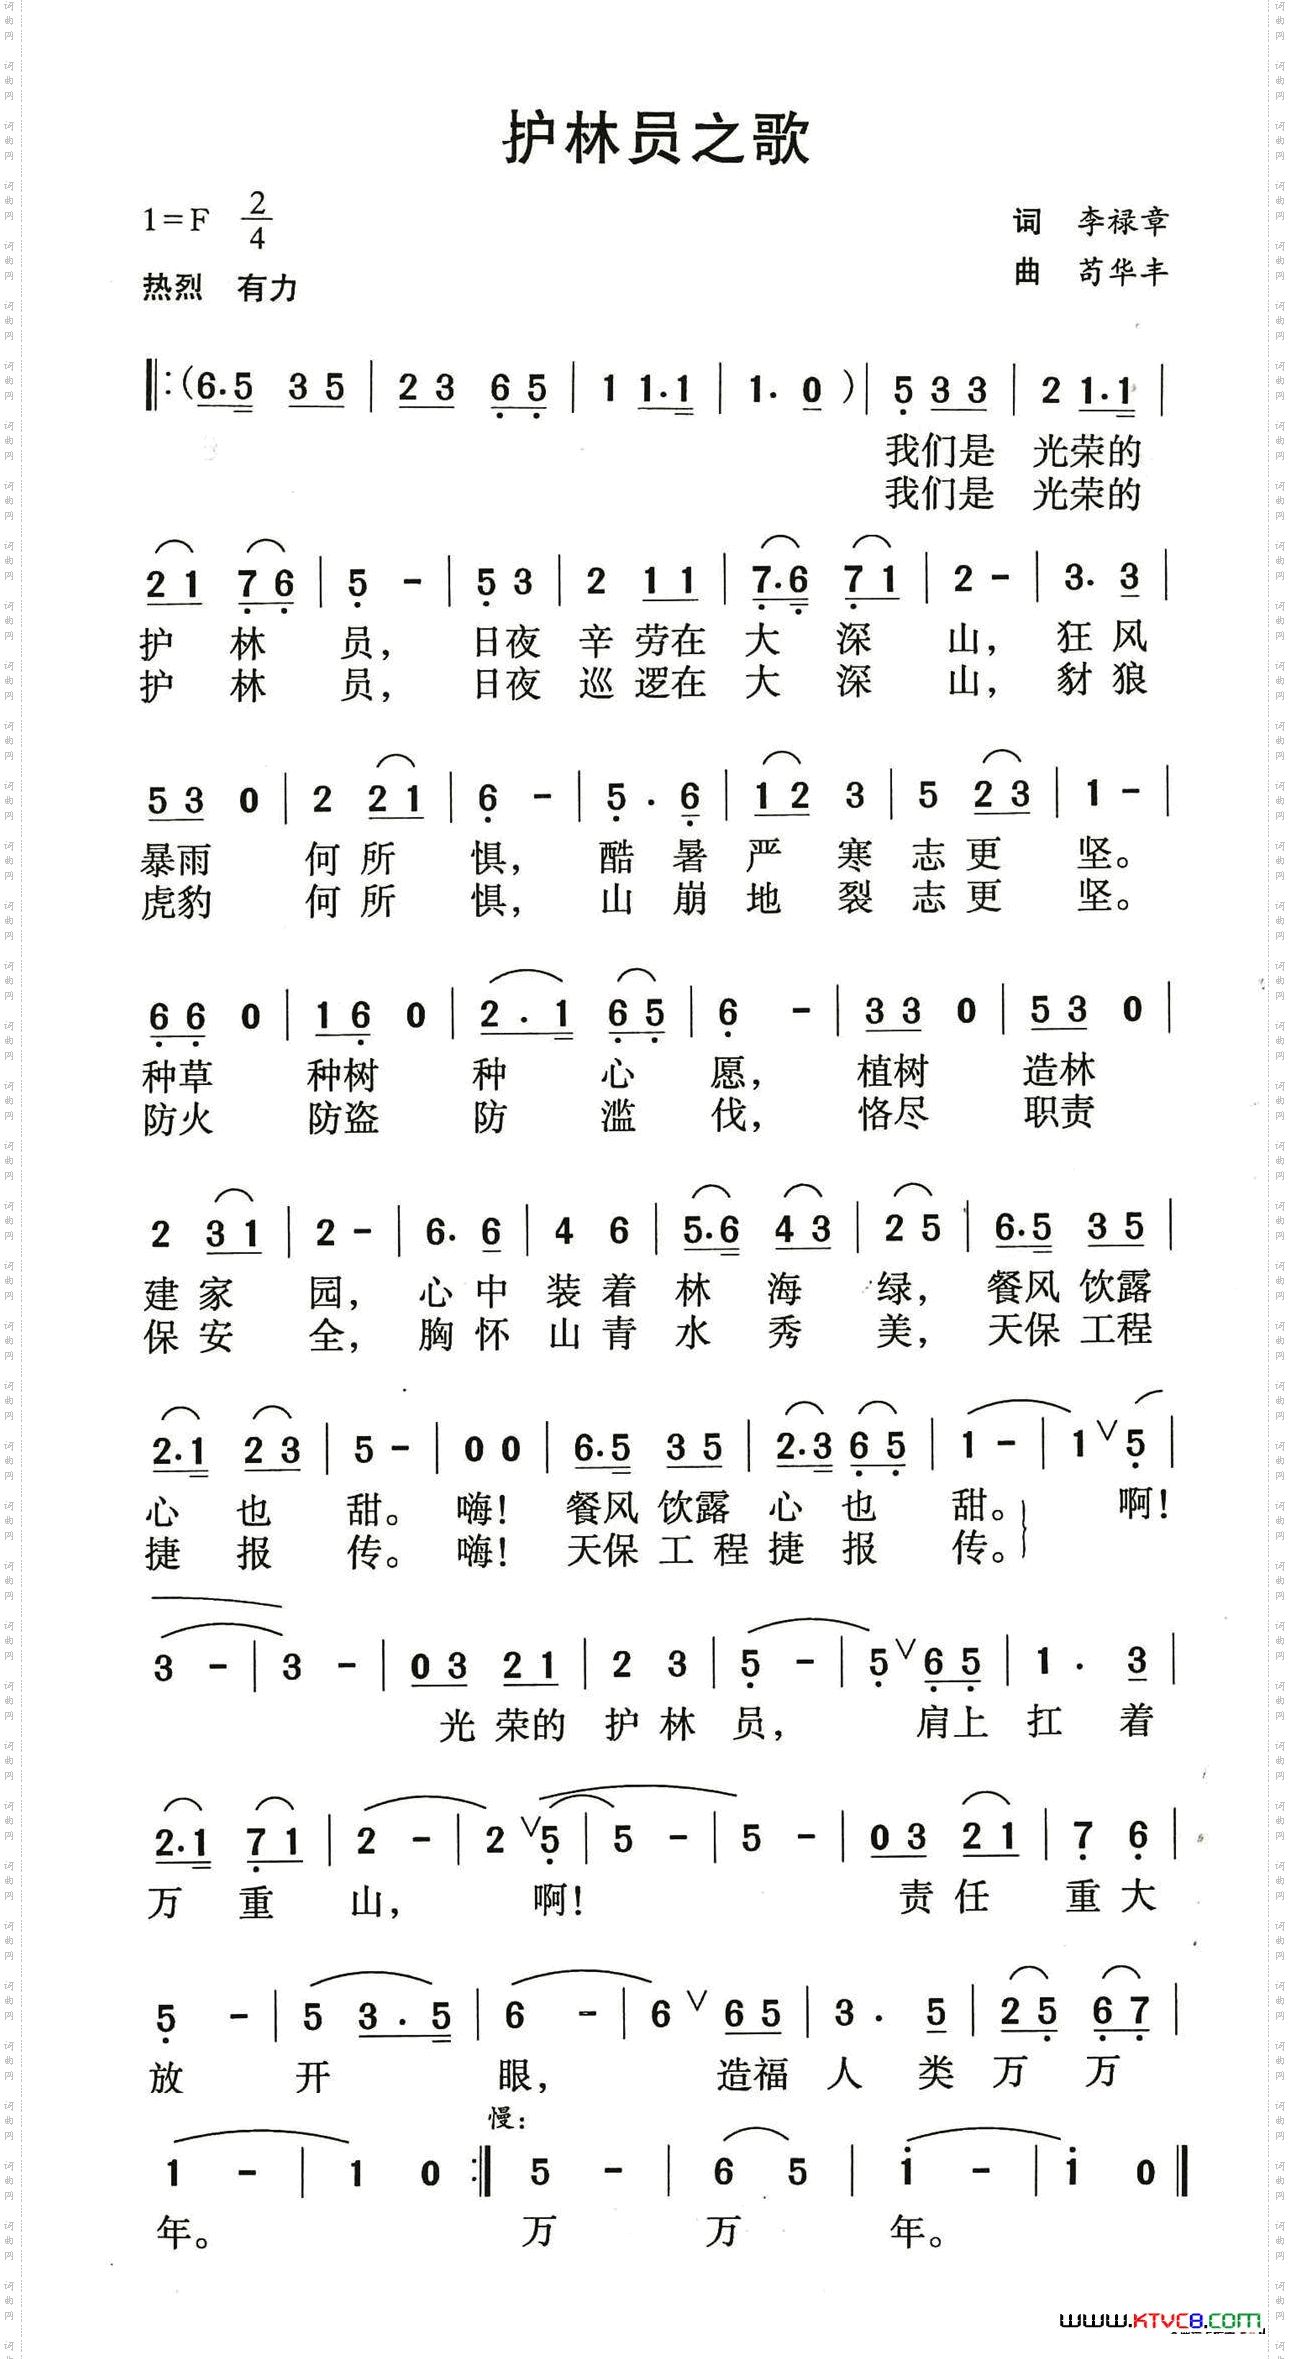 护林员之歌
1=F 2/4
词 李禄章
热烈 有力
曲 苟华丰
‖:(6.5 3 5 | 2 3 6 5 | 1 1.1 | 1. 0 )| 5 3 3 | 2 1.1 |
我们是 光荣的
我们是 光荣的
2 1 7 6 | 5 - | 5 3 | 2 1 1 | 7.6 7 1 | 2 - | 3. 3 |
护 林 员, 日夜 辛 劳在 大 深 山, 狂 风
护 林 员, 日夜 巡 逻在 大 深 山, 豺 狼
5 3 0 | 2 2 1 | 6 - | 5 . 6 | 1 2 3 | 5 2 3 | 1 - |
暴雨 何 所 惧, 酷 暑 严 寒 志 更 坚。
虎豹 何 所 惧, 山 崩 地 裂 志 更 坚。
6 6 0 | 1 6 0 | 2 . 1 6 5 | 6 - | 3 3 0 | 5 3 0 |
种草 种树 种 心 愿, 植树 造林
防火 防盗 防 滥 伐, 恪尽 职责
2 3 1 | 2 - | 6. 6 | 4 6 | 5.6 4 3 | 2 5 | 6.5 3 5 |
建 家 园, 心 中 装 着 林 海 绿, 餐风 饮露
保 安 全, 胸 怀 山 青 水 秀 美, 天保 工程
2.1 2 3 | 5 - | 0 0 | 6.5 3 5 | 2.3 6 5 | 1 - | 1 ∨ 5 |
心 也 甜。 嗨! 餐风 饮露 心 也 甜。 啊!
捷 报 传。 嗨! 天保 工 程 捷 报 传。
3 - | 3 - | 0 3 2 1 | 2 3 | 5 - | 5 ∨ 6 5 | 1 . 3 |
光 荣的 护 林 员, 肩上 扛 着
2.1 7 1 | 2 - | 2 ∨ 5 | 5 - | 5 - | 0 3 2 1 | 7 6 |
万 重 山, 啊! 责 任 重 大
5 - | 5 3 . 5 | 6 - | 6 ∨ 6 5 | 3 . 5 | 2 5 6 7 |
放 开 眼, 造福 人 类 万 万
慢:
1 - | 1 0 :‖ 5 - | 6 5 | i - | i 0 ‖
年。 万 万 年。
www.KTVC8.com